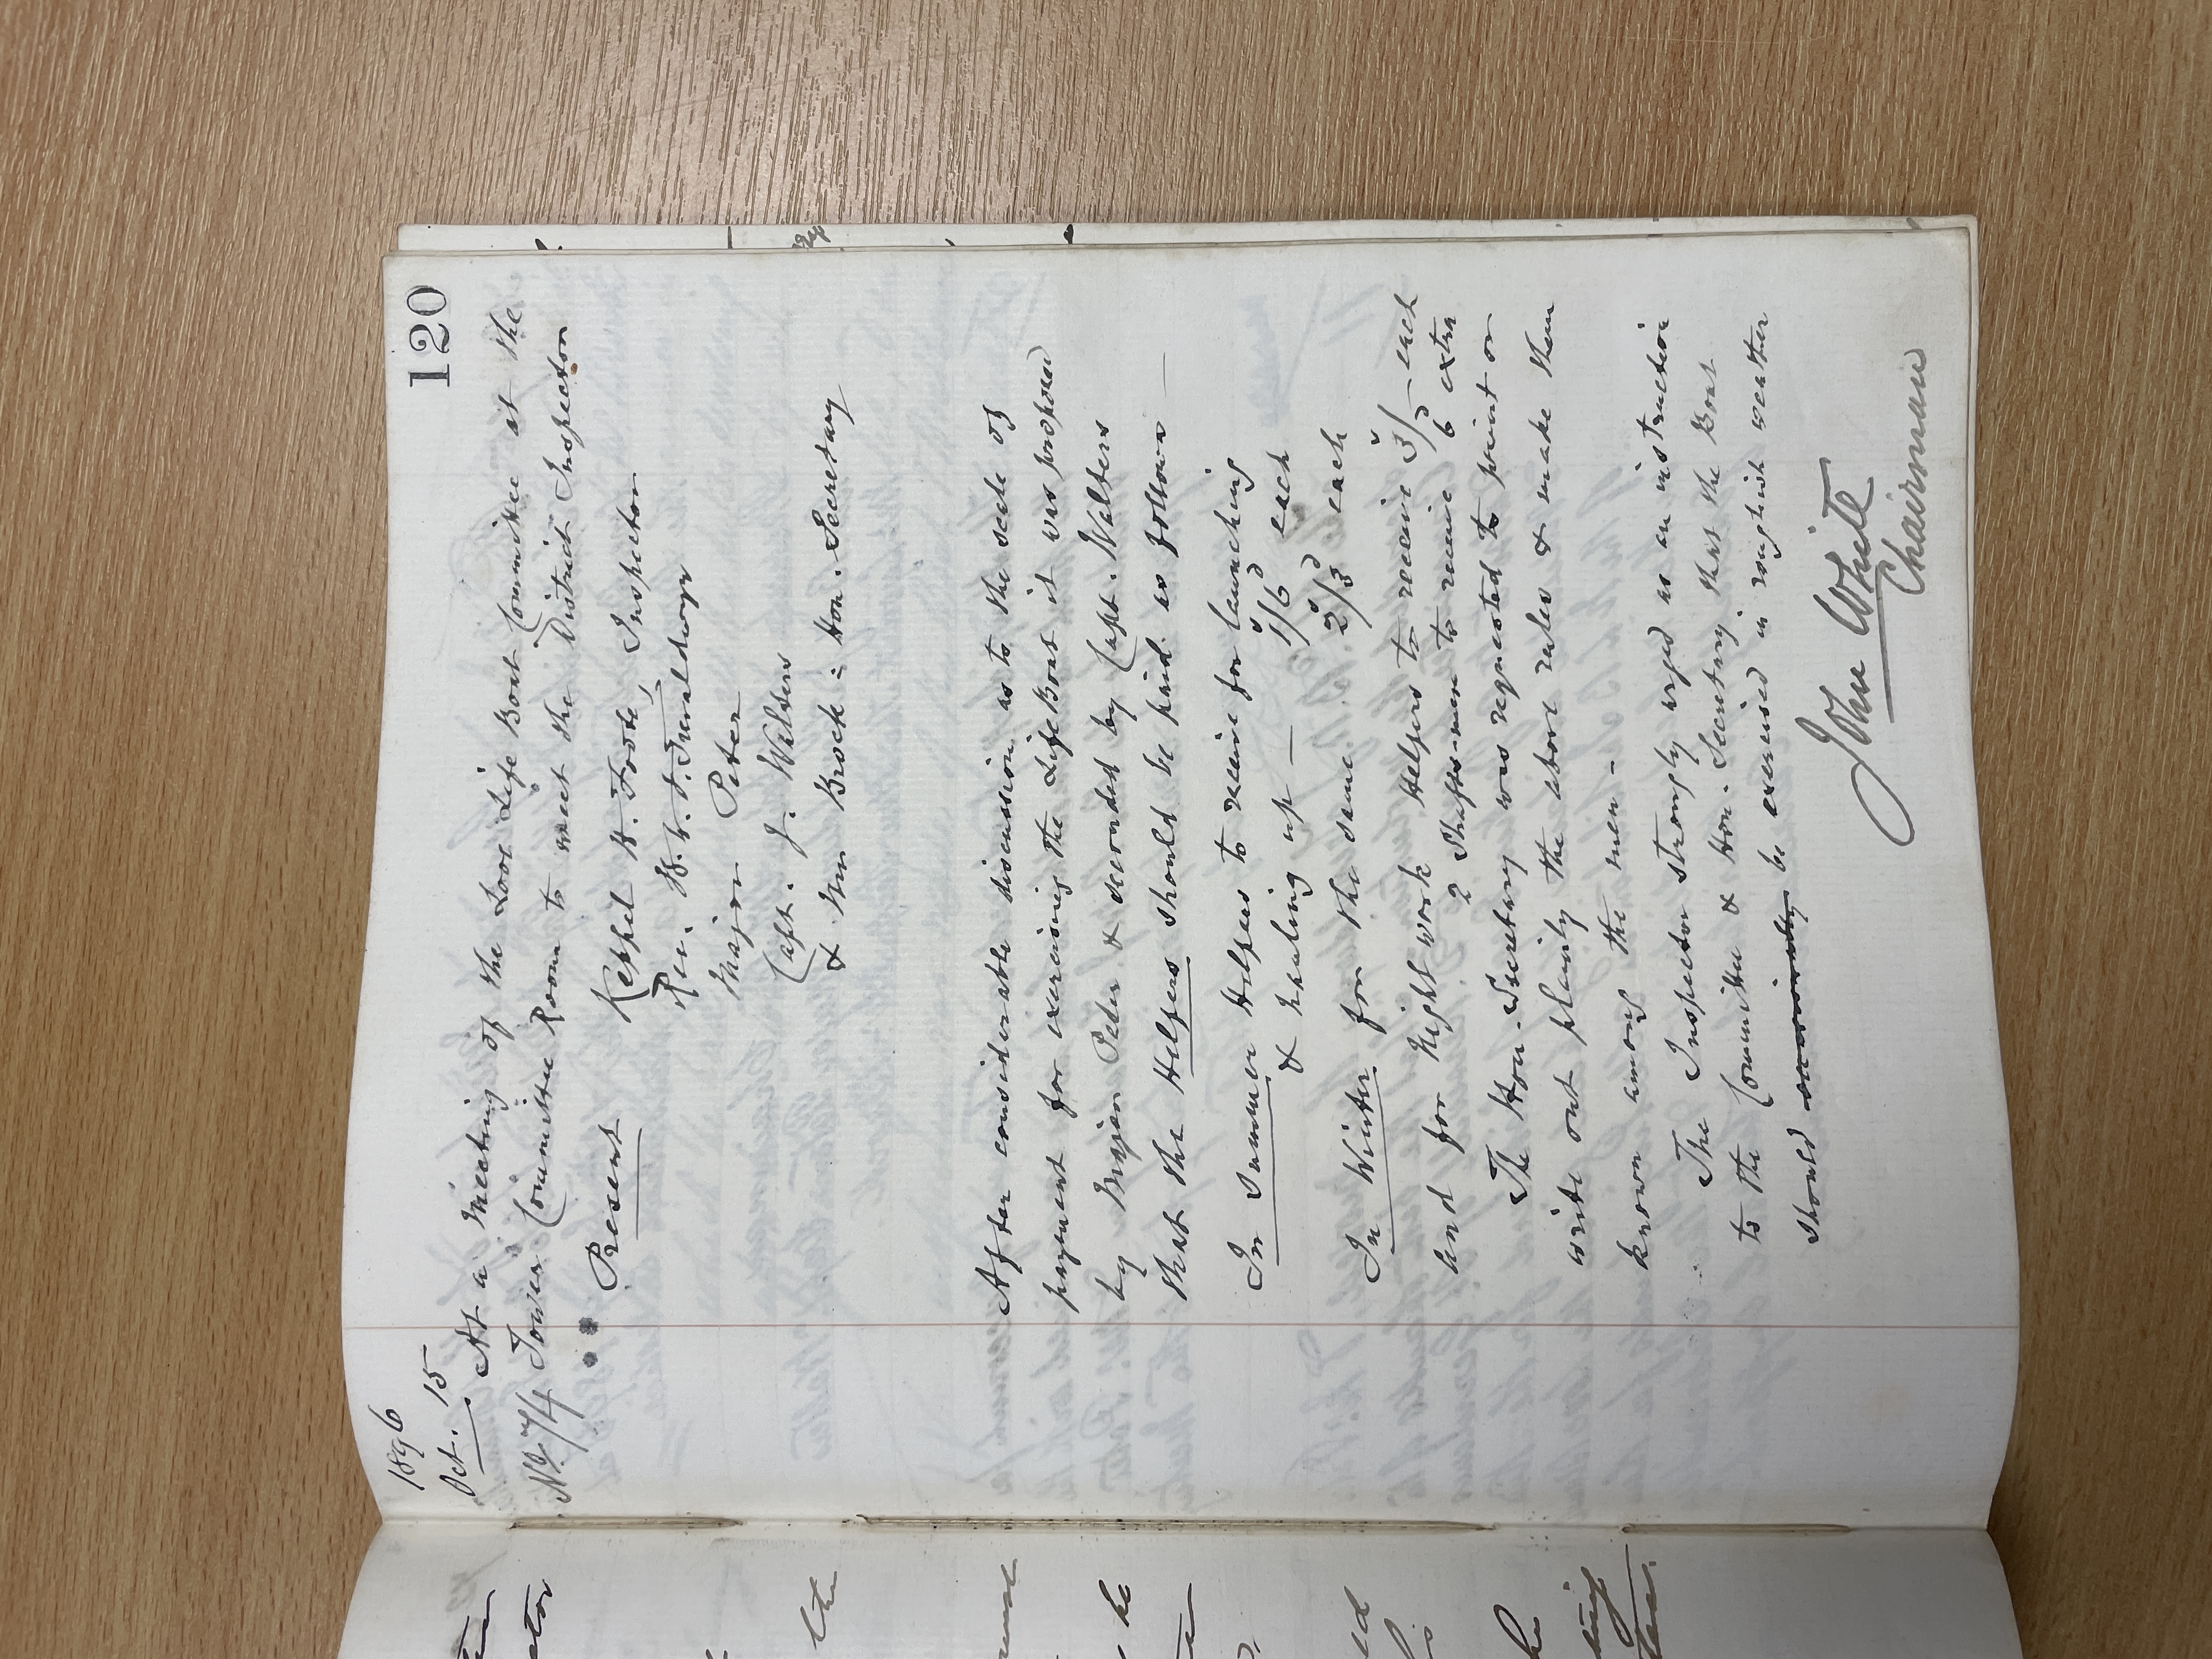 120
1896
Oct. 15 At a Meeting of the Looe Life Boat Committee at the
No. 74 Tower Committee Room to meet the District Inspector
Present Keppel H. Foote, Inspector
Rev. H.
Major Peter
Capt. J. Walters
& Wm Brock : Hon. Secretary
After considerable discussion as to the scale of
payment for exercising the Life Boat it was proposed
by Major Peter & seconded by Capt. Walters
that the Helpers should be paid as follows —
In Summer Helpers to receive for launching
& hauling up — 1s/6d each
In Winter for the same 2s/3d each
and for Night work Helpers to receive 3s/- each
2 Shaftsmen to receive 6d extra
The Hon. Secretary was requested to print or
write out plainly the above rules & make them
known among the men -
The Inspector strongly urged as an instruction
to the Committee & Hon. Secretary that the Boat
should occasionally be exercised in roughish weather
John White
Chairman
ctor
the
be